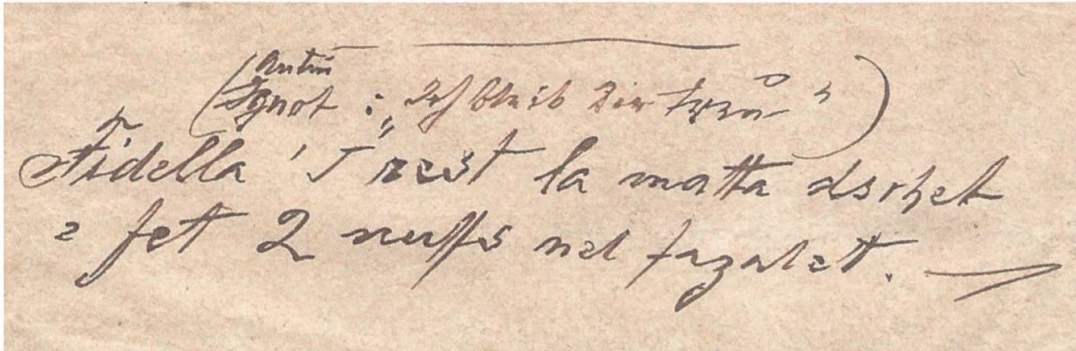 : „Ich bleib Dir treu")
Fidella 'T rest la matta dschet
e fet 2 nuffs nel fazalet.